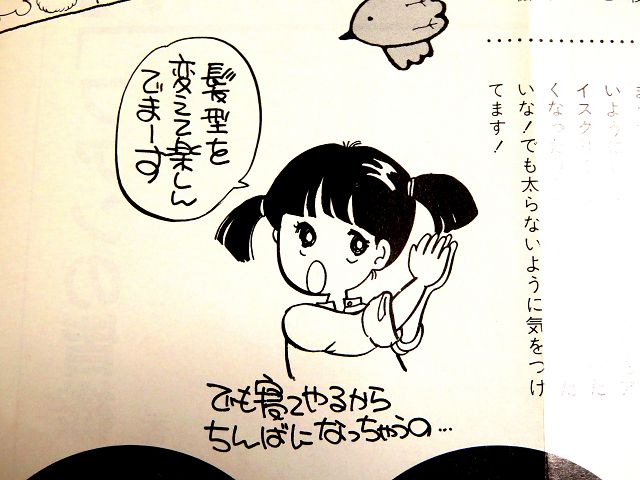 髪型を
変えて楽しん
でまーす
でも寝てやるから
ちんばになっちゃうの…
いように
イスク
くなった
いな!でも太らないように気をつけ
てます!